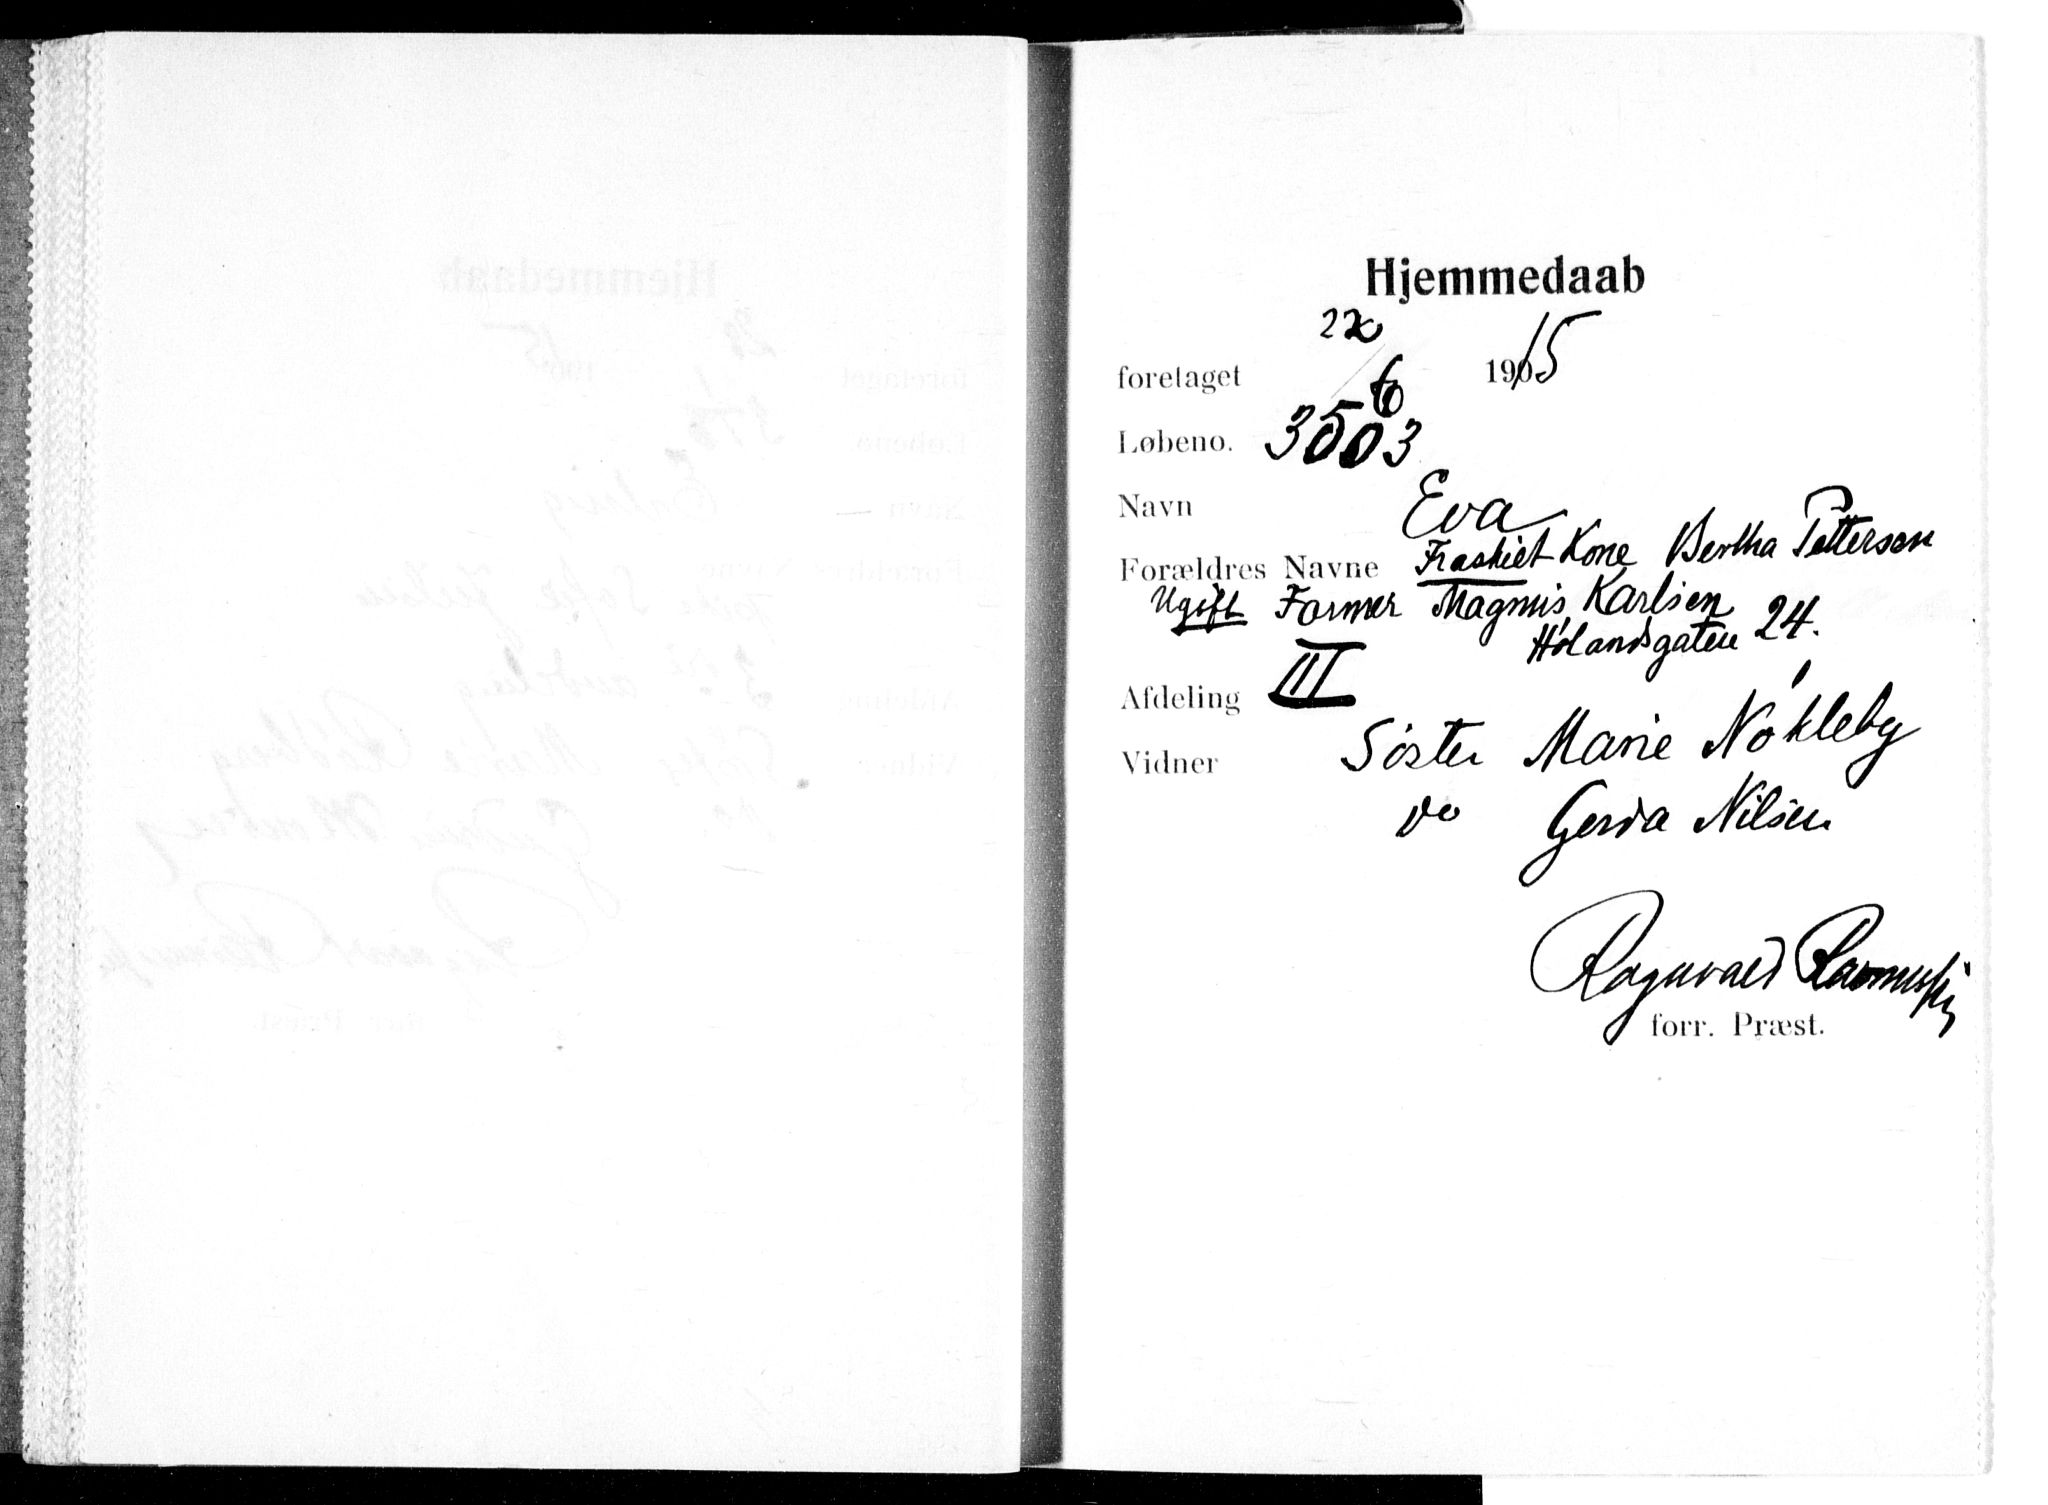 Hjemmedaab
foretaget 22/6 1915
Løbeno. 3503
Navn Eva
Forældres Navne Fraskiet Kone Bertha Pettersen
Ugift Farmer Magnus Karlsen
Hølandsgaten 24.
Afdeling III
Vidner Søster Marie Nøkleby
do Gerda Nilsen
Ragnvald
forr. Præst.